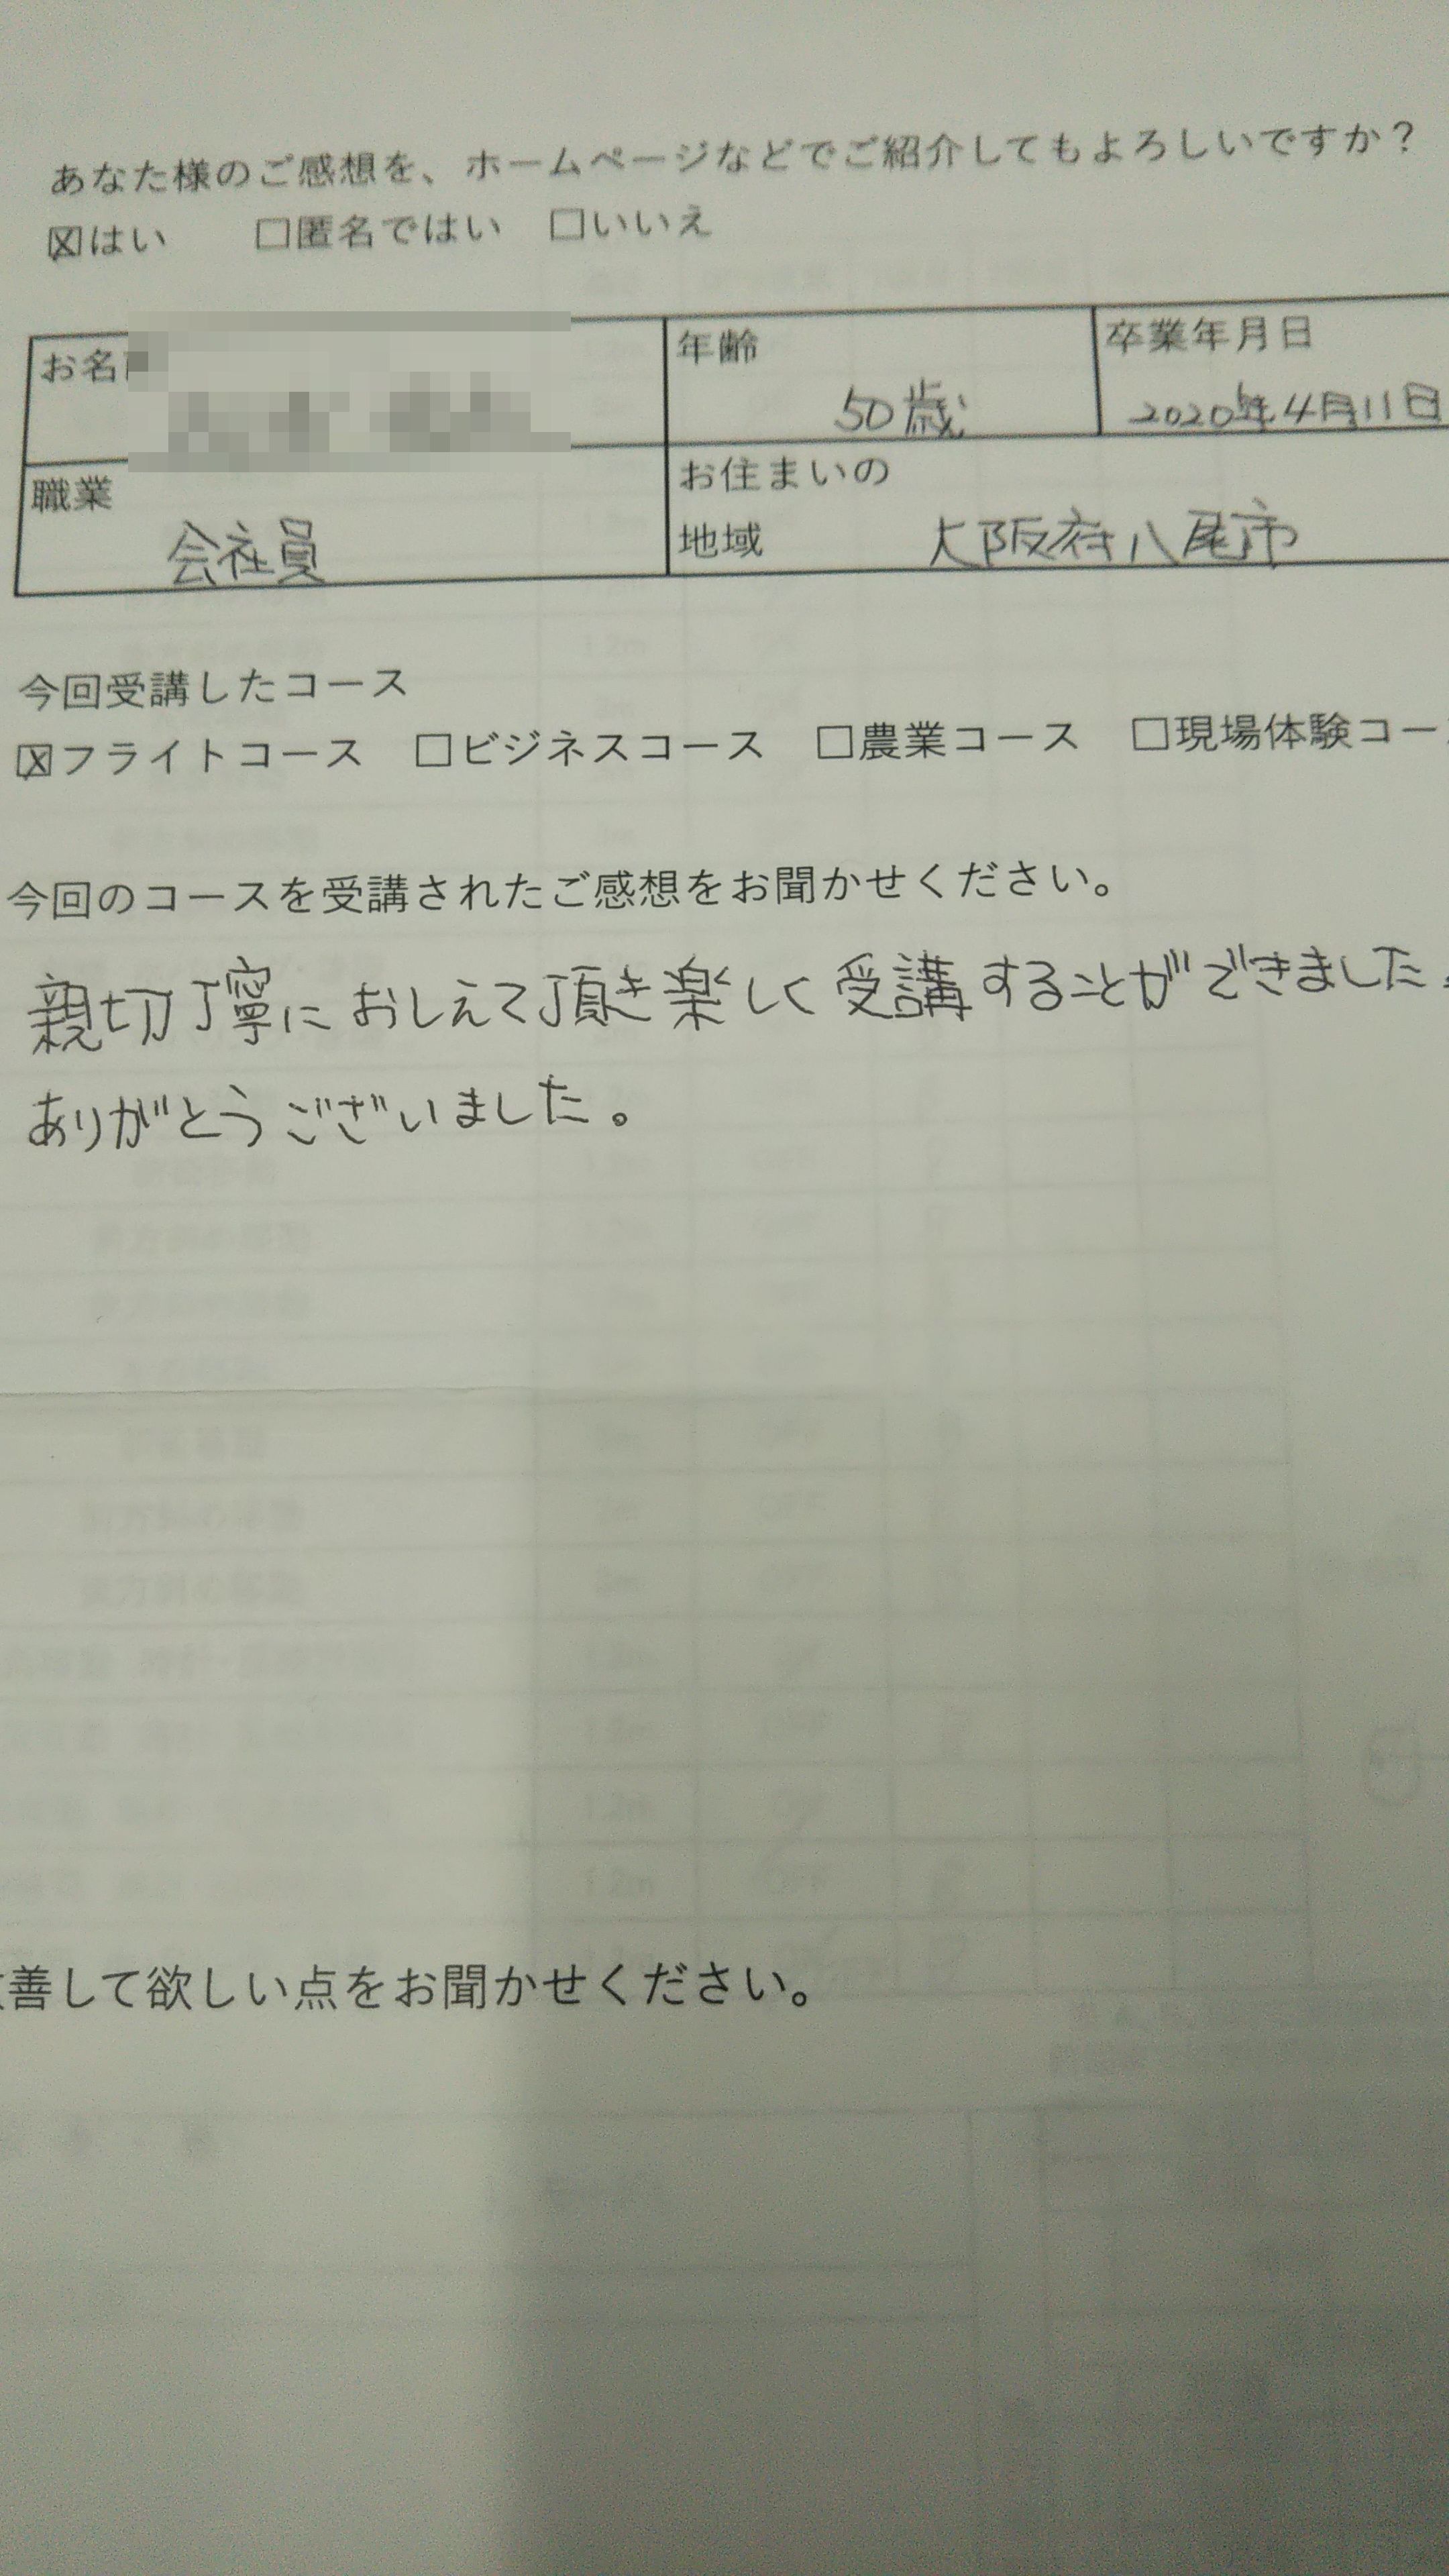 あなた様のご感想を、ホームページなどでご紹介してもよろしいですか？
☒はい　□匿名ではい　□いいえ
お名
年齢
卒業年月日
50歳
2020年4月11日
職業
お住まいの
地域
会社員
大阪府八尾市
今回受講したコース
☒フライトコース　□ビジネスコース　□農業コース　□現場体験コー
今回のコースを受講されたご感想をお聞かせください。
親切丁寧におしえて頂き楽しく受講することができました
ありがとうございました。
善して欲しい点をお聞かせください。